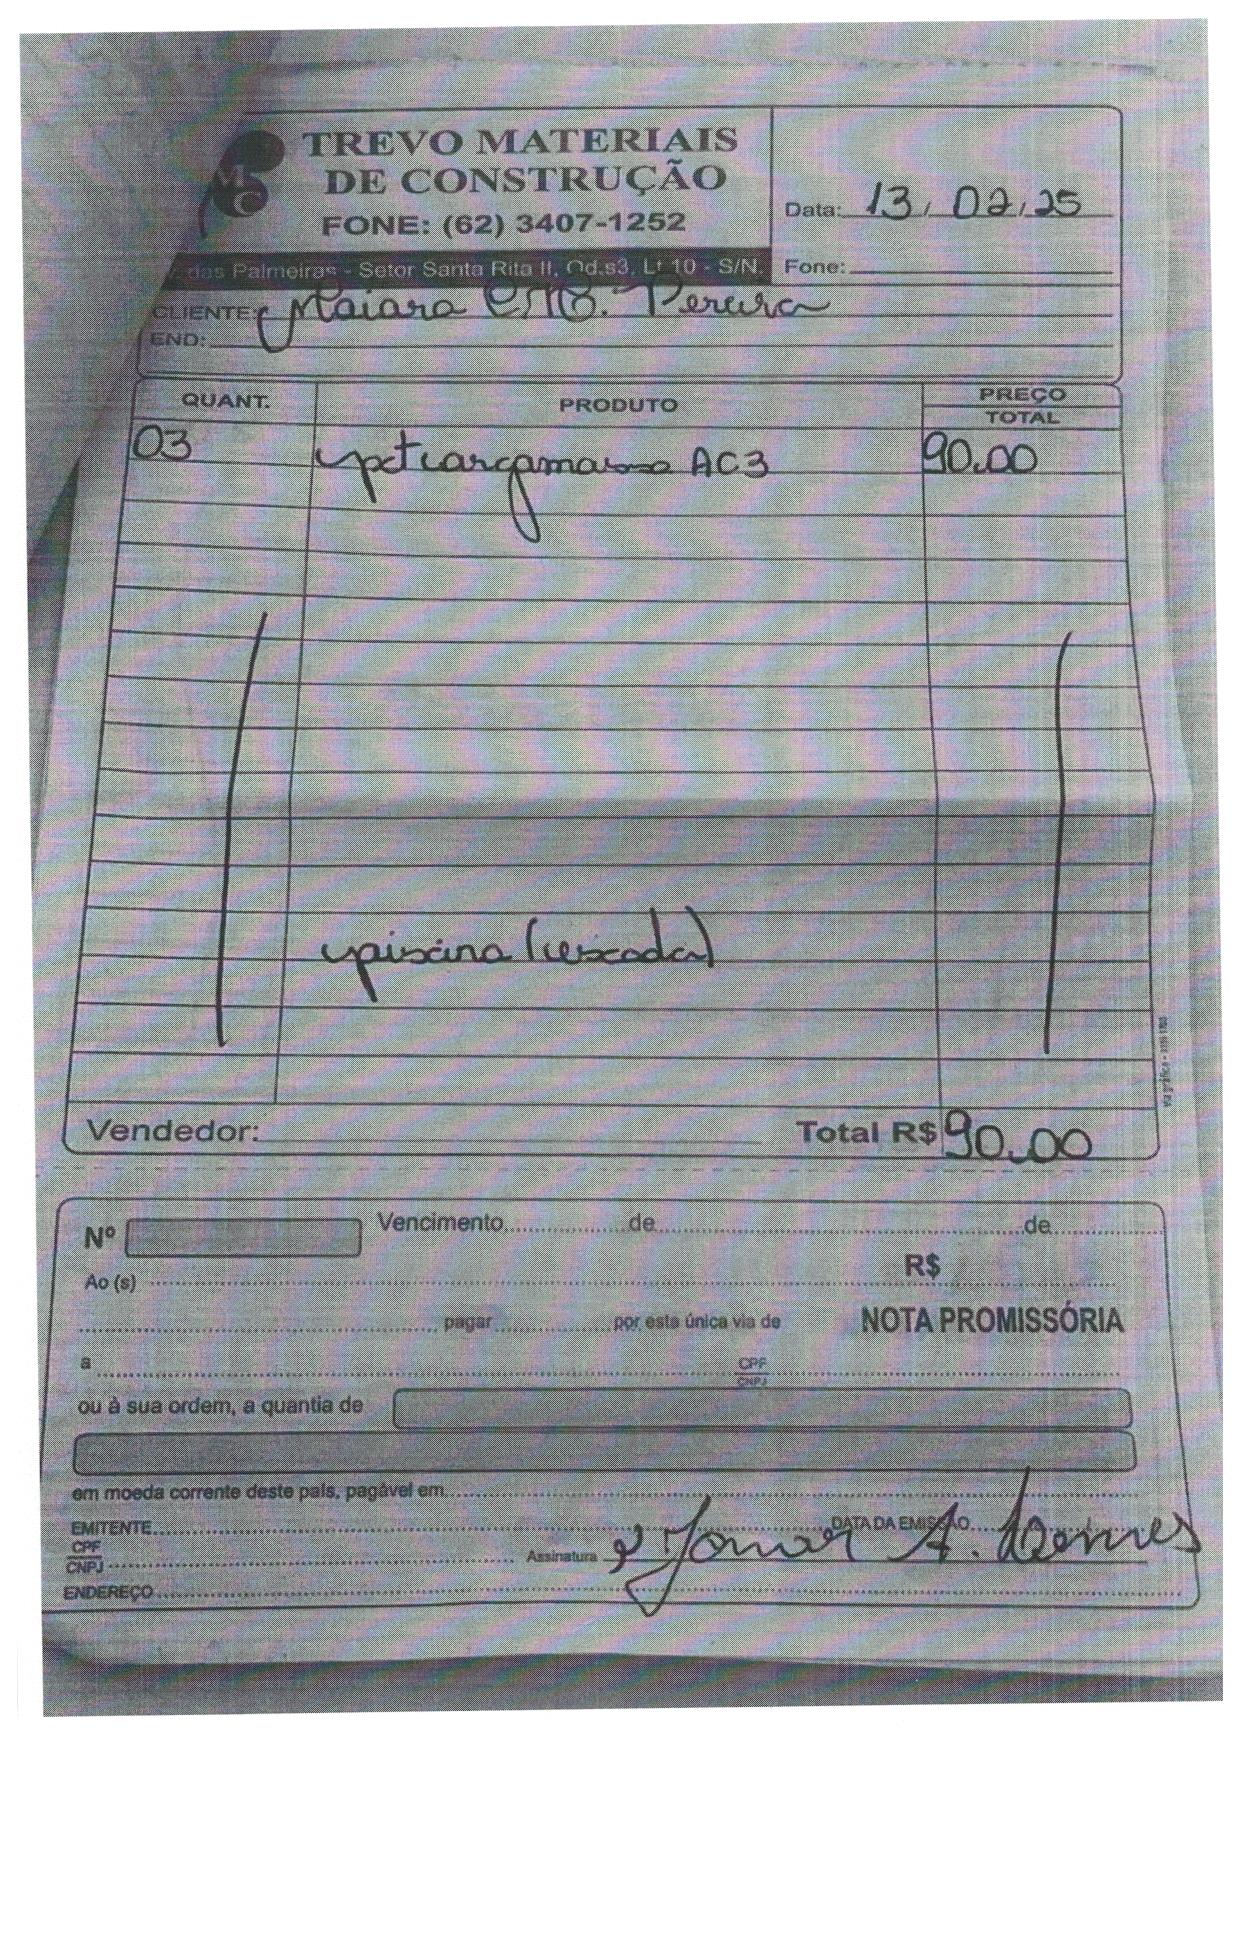 MC
TREVO MATERIAIS
DE CONSTRUÇÃO
FONE: (62) 3407-1252
das Palmeiras - Setor Santa Rita II, Qd.s3, Lt 10 - S/N.
Data: 13, 02, 25
Fone:
CLIENTE: Maiara Pereira
END:
QUANT. PRODUTO PREÇO
TOTAL
03 pct argamassa AC3 90.00
piscina (escada)
Vendedor: Total R$ 90.00
via gráfica -
Nº Vencimento de de
R$
Ao (s)
pagar por esta única via de NOTA PROMISSÓRIA
a CPF
CNPJ
ou à sua ordem, a quantia de
em moeda corrente deste país, pagável em
EMITENTE DATA DA EMISSÃO
CPF
CNPJ Assinatura A.
ENDEREÇO